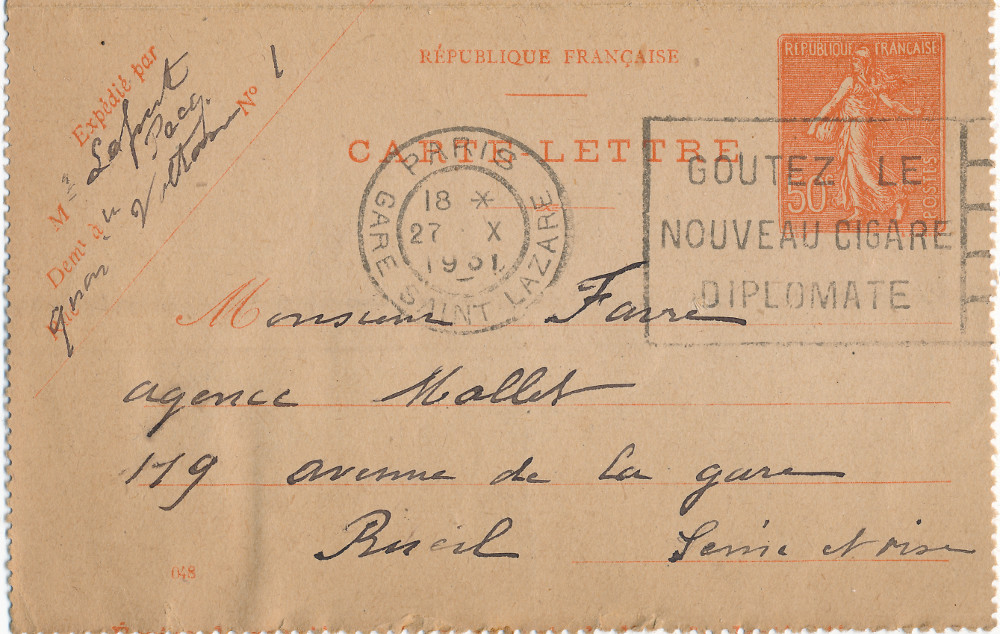 RÉPUBLIQUE FRANÇAISE
CARTE-LETTRE
RÉPUBLIQUE FRANÇAISE
50 c
POSTES
PARIS
18 *
27 X
1931
GARE SAINT LAZARE
GOUTEZ LE
NOUVEAU CIGARE
DIPLOMATE
Expédié par
M
Demt à
N° 1
Monsieur Favre
agence Mallet
179 avenue de la gare
Rueil Seine et oise
048